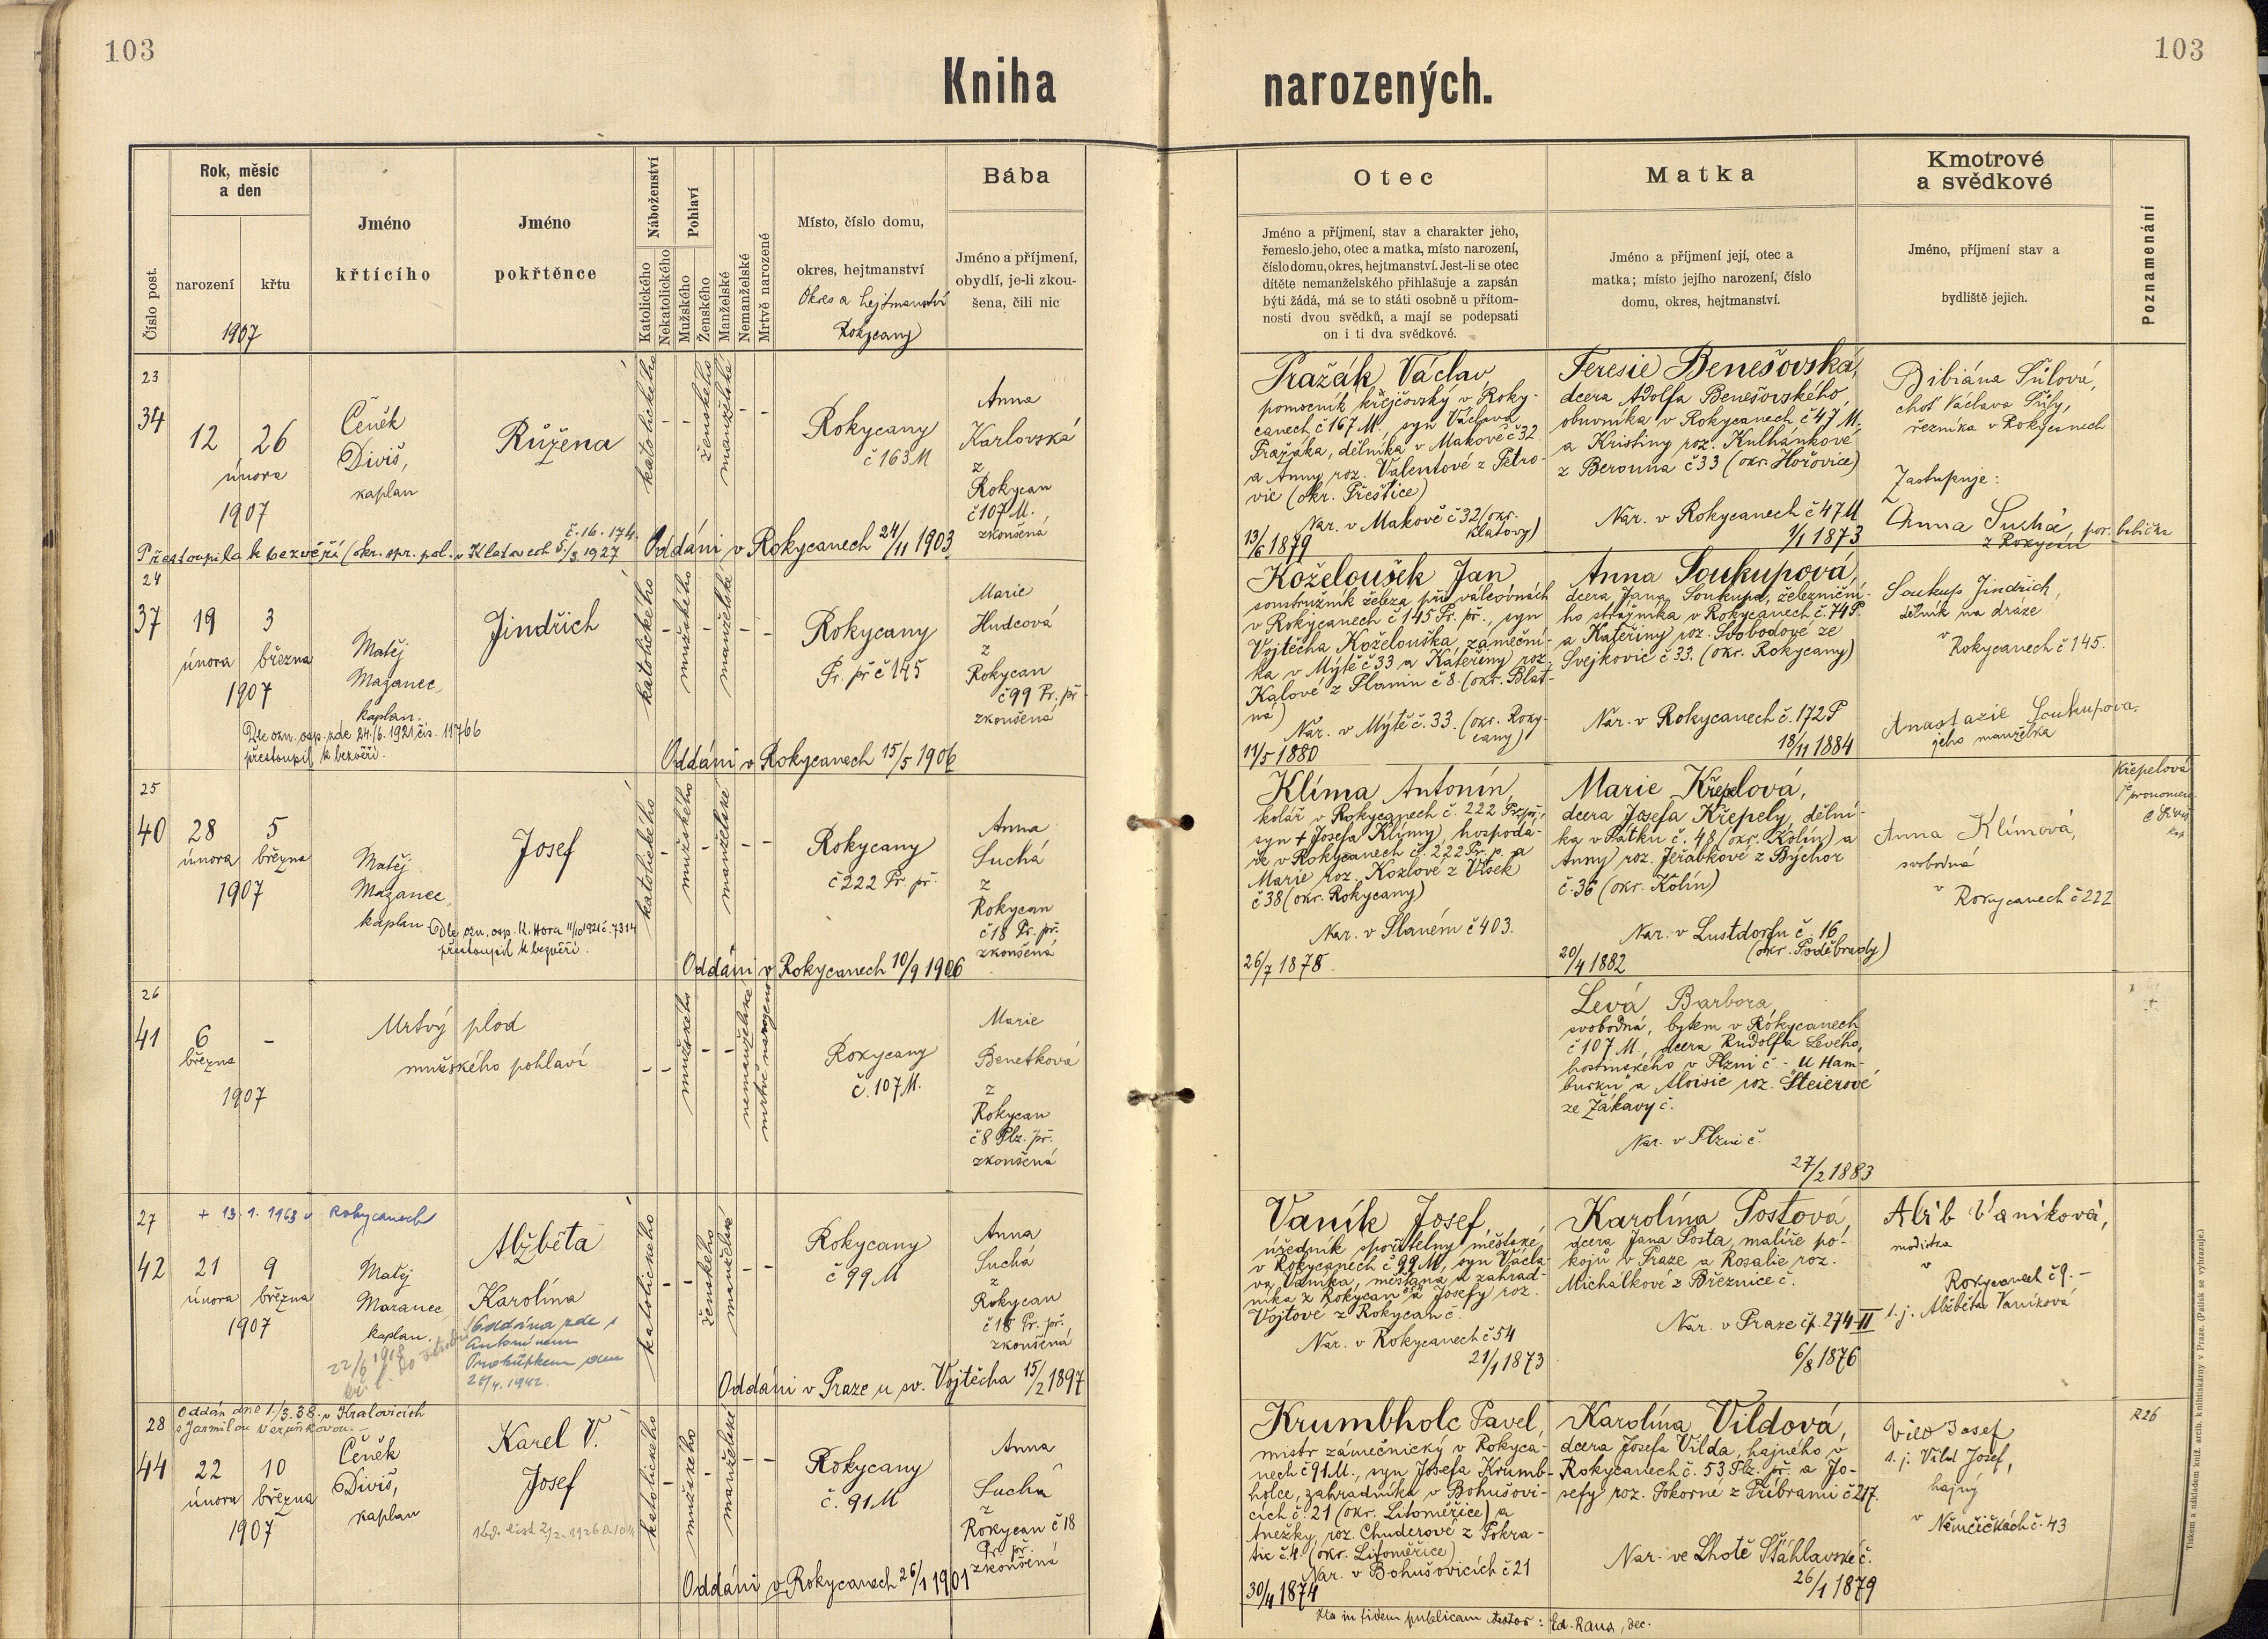 103
103
Kniha
narozených.
Číslo post.
Rok, měsíc
a den
narození
křtu
1907
Jméno
křtícího
Jméno
pokřtěnce
Náboženství
Katolického
Nekatolického
Pohlaví
Mužského
Ženského
Manželské
Nemanželské
Mrtvě narozené
Místo, číslo domu,
okres, hejtmanství
Okres a hejtmanství
Rokycany
Bába
Jméno a příjmení,
obydlí, je-li zkou-
šena, čili nic
Otec
Jméno a příjmení, stav a charakter jeho,
řemeslo jeho, otec a matka, místo narození,
číslo domu, okres, hejtmanství. Jest-li se otec
dítěte nemanželského přihlašuje a zapsán
býti žádá, má se to státi osobně u přítom-
nosti dvou svědků, a mají se podepsati
on i ti dva svědkové.
Matka
Jméno a příjmení její, otec a
matka; místo jejího narození, číslo
domu, okres, hejtmanství.
Kmotrové
a svědkové
Jméno, příjmení stav a
bydliště jejich.
Poznamenání
23
34
12 26
února
1907
Čeněk
Diviš,
kaplan
Růžena
katolického
-
-
ženského
manželské
- -
Rokycany
č 163 M
Anna
Karlovská
z
Rokycan
č 107 M.,
zkoušená
Přestoupila k bezvěří (okr. spr. pol. v Klatovech 5/3. 1927
č. 16. 174.
Oddáni v Rokycanech 24/11 1903
Pražák Václav
pomocník krejčovský v Roky-
canech č 167 M., syn Václava
Pražáka, dělníka v Makově č 32
a Anny roz. Valentové z Petro-
vic (okr. Přeštice)
Nar. v Makově č 32 (okr.
Klatovy)
13/6 1879
Teresie Benešovská,
dcera Adolfa Benešovského,
obuvníka v Rokycanech č 47 M.
a Kristiny roz. Kulhánkové
z Berouna č 33 (okr. Hořovice)
Nar. v Rokycanech č 47 M
1/1 1873
Bibiána Šůlová,
choť Václava Šůly,
řezníka v Rokycanech
Zastupuje:
Anna Suchá, por. babička
z Rokycan
24
37
19 3
února března
1907
Matěj
Mazanec,
kaplan.
Dle ozn. osp. zde 24./6. 1921 čís. 11766
přestoupil k bezvěří.
Jindřich
katolického
-
mužského
-
manželské
- -
Rokycany
Pr. př č 145
Marie
Hudcová
z
Rokycan
č 99 Pr. př
zkoušená
Oddáni v Rokycanech 15/5 1906
Koželoušek Jan
soustružník železa při válcovnách
v Rokycanech č 145 Pr. př., syn
Vojtěcha Koželouška, zámeční-
ka v Mýtě č 33 a Kateřiny roz.
Kalové z Planin č 8. (okr. Blat-
ná)
Nar. v Mýtě č. 33. (okr. Roky-
cany)
11/5 1880
Anna Soukupová,
dcera Jana Soukupa, železniční-
ho strážníka v Rokycanech č. 74 P.
a Kateřiny roz. Svobodové ze
Svejkovic č 33. (okr. Rokycany)
Nar. v Rokycanech č. 172 P
18/11 1884
Soukup Jindřich,
dělník na dráze
v
Rokycanech č 145.
Anastazie Soukupova.
jeho manželka
25
40
28 5
února března
1907
Matěj
Mazanec,
kaplan
Dle ozn. osp. K. Hora 11/10 1921 č. 7314
přestoupil k bezvěří.
Josef
katolického
-
mužského
-
manželské
- -
Rokycany
č 222 Pr. př.
Anna
Suchá
z
Rokycan
č 18 Pr. př.
zkoušená
Oddáni v Rokycanech 10/9 1906
Klíma Antonín,
kolář v Rokycanech č. 222 Pr. př.,
syn + Josefa Klímy, hospodá-
ře v Rokycanech č. 222 Pr. p. a
Marie roz. Kozlové z Vísek
č 38 (okr. Rokycany)
Nar. v Slaném č 403.
26/7 1878
Marie Křepelová,
dcera Josefa Křepely, dělní-
ka v Pátku č. 48 (okr. Kolín) a
Anny roz. Jeřábkové z Býchor
č. 36 (okr. Kolín)
Nar. v Lustdorfu č. 16
(okr. Poděbrady)
20/4 1882
Anna Klímová,
svobodná
v
Rokycanech č 222
Křepelová
26
41
6 -
března
1907
Mrtvý plod
mužského pohlaví
- -
mužského
- -
nemanželské
mrtvě narozené
Rokycany
č. 107 M.
Marie
Benetková
z
Rokycan
č 8 Plz. př.
zkoušená
Levá Barbora,
svobodná, bytem v Rokycanech
č 107 M, dcera Rudolfa Levého,
hostinského v Plzni č - „U Ham-
burku“ a Aloisie roz. Šteierové
ze Žákavy č.
Nar. v Plzni č.
27/2 1883
27
+ 13. 1. 1963 v Rokycanech
42
21 9
února března
1907
Matěj
Mazanec
kaplan.
22/6 1918
Alžběta
Karolína
Oddána zde s
Antonínem
26/4. 1942.
katolického
- -
ženského
manželské
- -
Rokycany
č 99 M
Anna
Suchá
z
Rokycan
č 18 Pr. př.,
zkoušená
Oddáni v Praze u sv. Vojtěcha 15/2 1897
Vaník Josef,
úředník spořitelny městské,
v Rokycanech č 99 M, syn Václa-
va Vaníka, měšťana a zahrad-
níka z Rokycan a Josefy roz.
Vojtové z Rokycan č.
Nar. v Rokycanech č 54
21/1 1873
Karolína Poštová,
dcera Jana Pošta, malíře po-
kojů v Praze a Rosalie roz.
Michálkové z Březnice č.
Nar. v Praze čp. 274-II
6/8 1876
Alžb Vaníková,
modistka
v
Rokycanech č 9. -
t. j. Alžběta Vaníková
28
Oddán dne 1./3. 38. v Kralovicích
s Jarmilou Beránkovou. -
44
22 10
února března
1907
Čeněk
Diviš,
kaplan
Karel V.
Josef
katolického
-
mužského
-
manželské
- -
Rokycany
č. 91 M
Anna
Suchá
z
Rokycan č 18
Pr. př.
zkoušená
Oddáni v Rokycanech 26/1 1901
Krumbholc Pavel,
mistr zámečnický v Rokyca-
nech č 91 M., syn Josefa Krumb-
holce, zahradníka v Bohušovi-
cích č. 21 (okr. Litoměřice) a
Anežky, roz. Chuderové z Pokra-
tic č. 4. (okr. Litoměřice)
Nar. v Bohušovicích č 21
30/4 1874
Karolína Vildová,
dcera Josefa Vilda, hajného v
Rokycanech č. 53 Plz. př. a Jo-
sefy roz. Pokorné z Příbrami č 217.
Nar. ve Lhotě Šťáhlavské č.
26/1 1879
Vild Josef
t. j. Vild Josef,
hajný
v Němčičkách č. 43
R26
Ita in fidem publicam testor: Ed. Raus, dec.
Tiskem a nákladem kníž. arcib. knihtiskárny v Praze. (Patisk se vyhrazuje.)